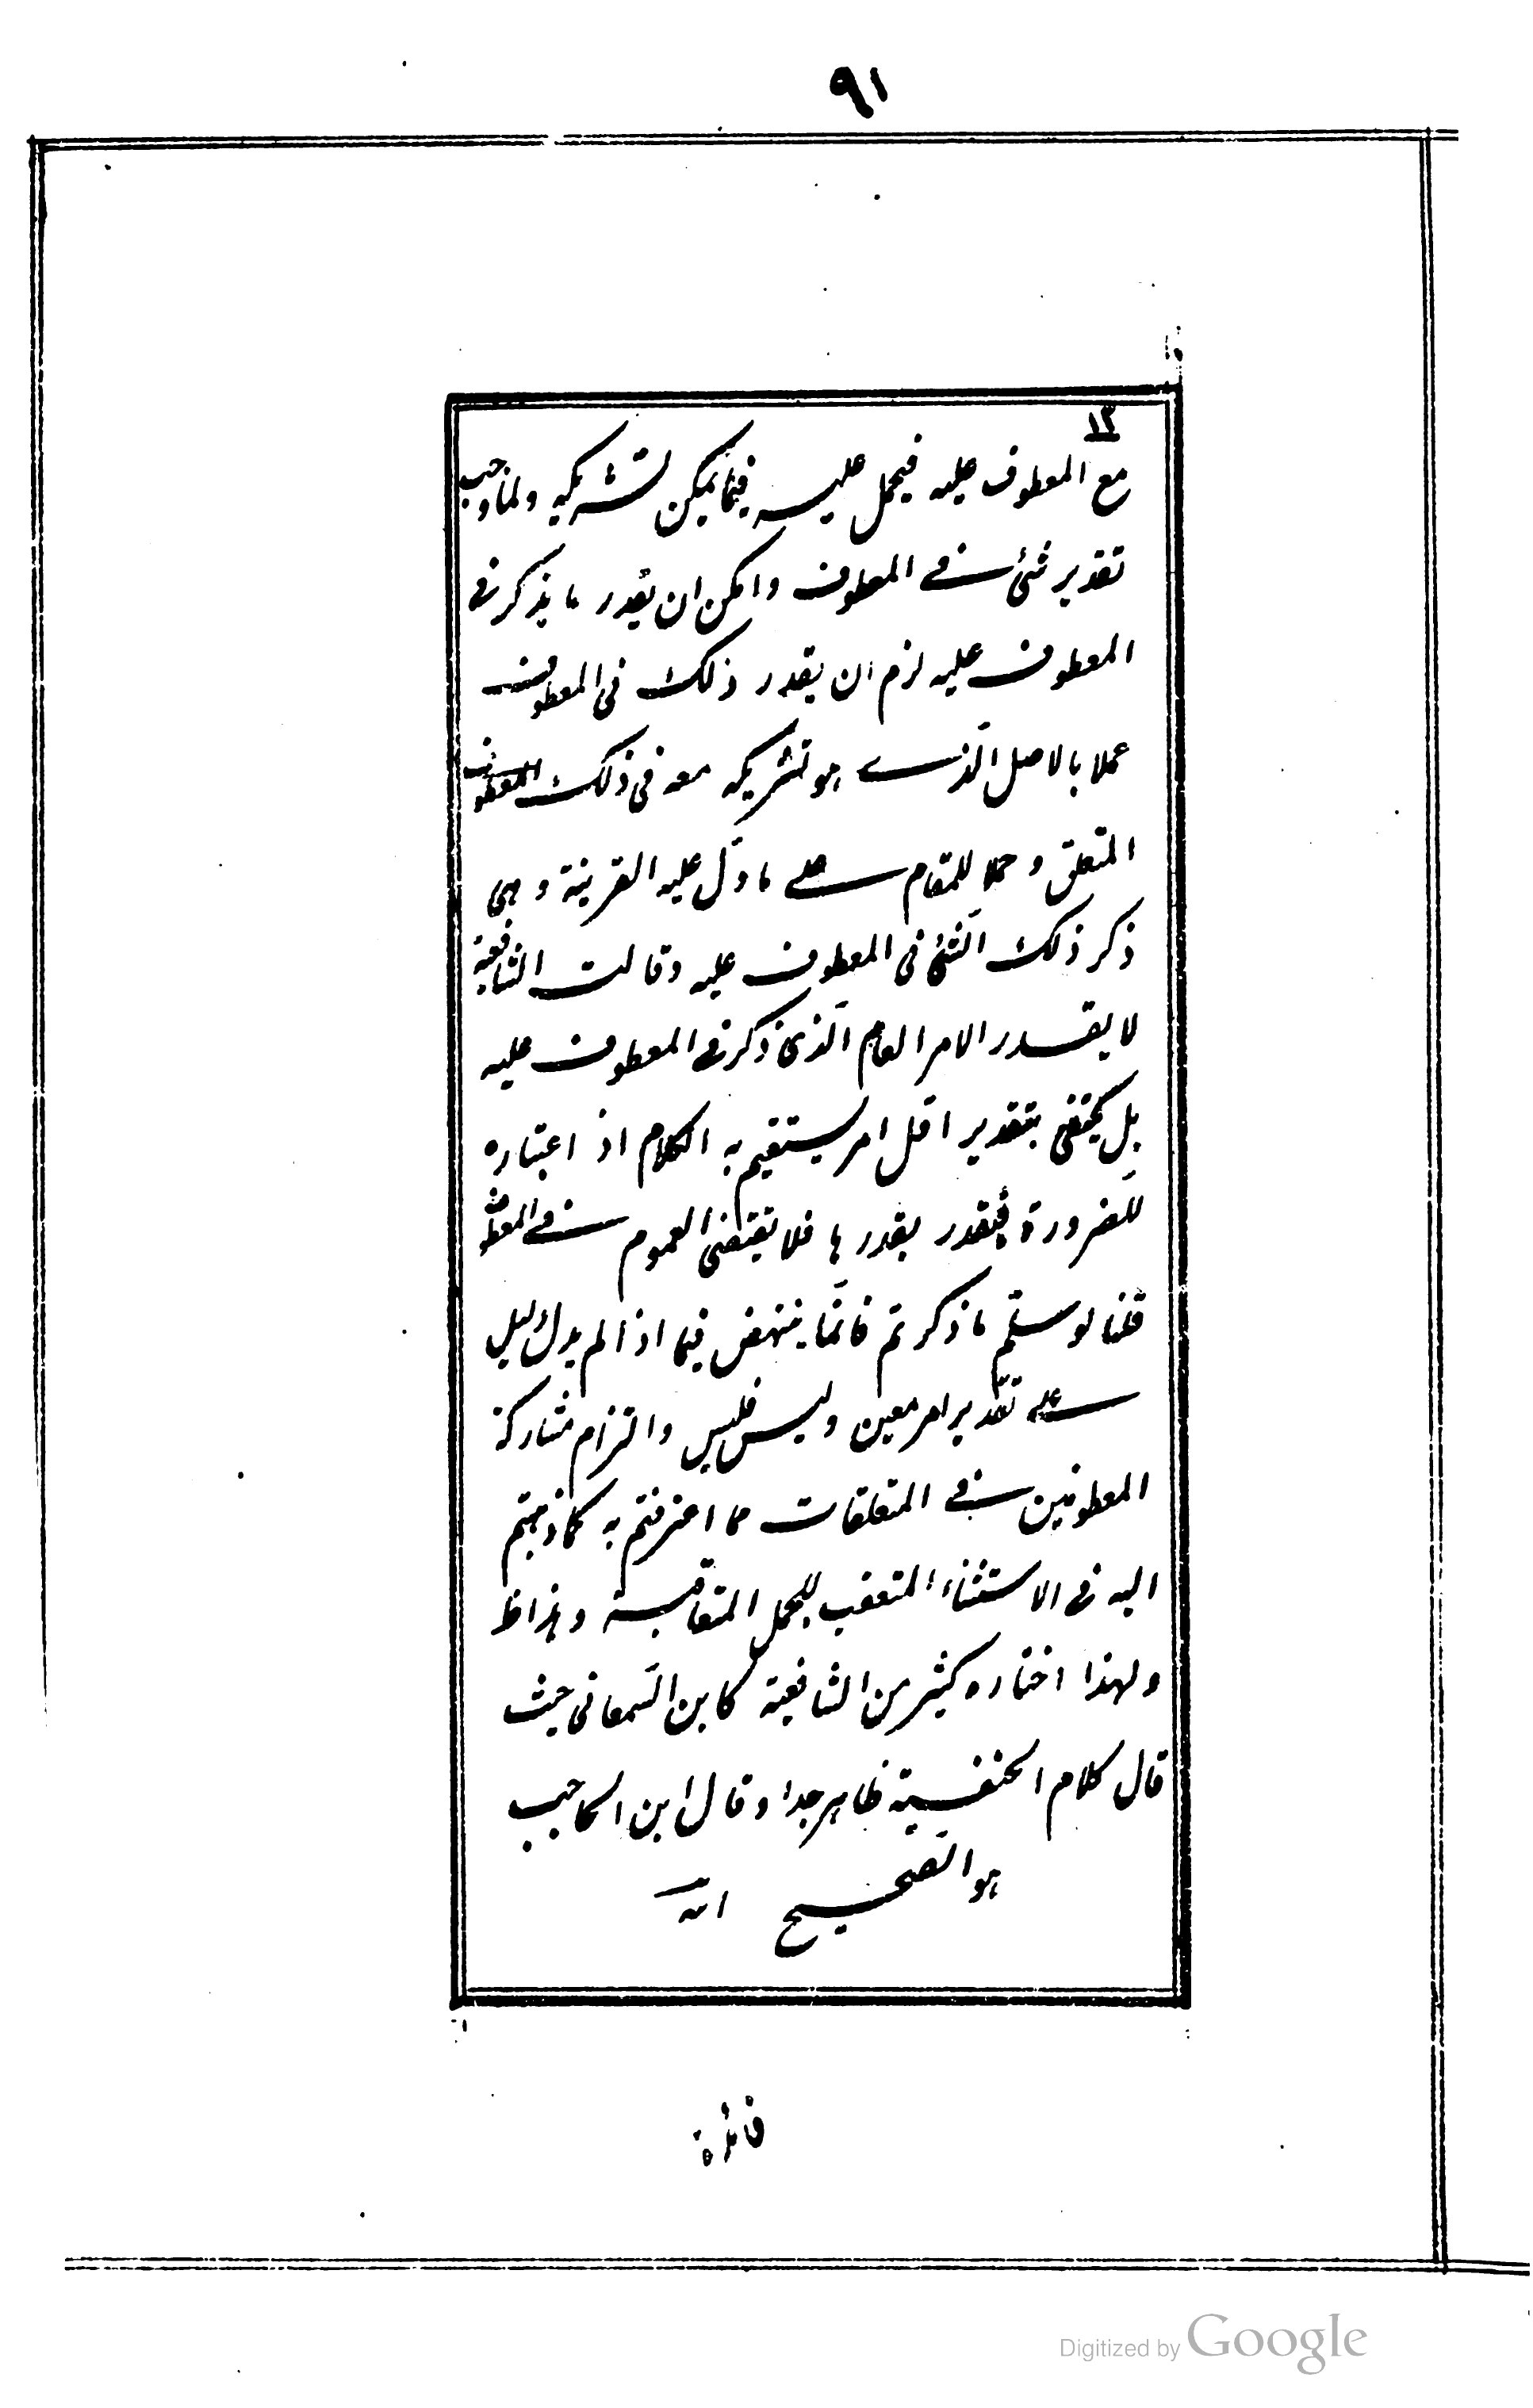 ٩١
١٢
مع المعطوف عليه فيحمل عليه فيما يمكن تشريكه ولما وجب
تقدير شئ في المعطوف وامكن ان يقدر ما يذكر في
المعطوف عليه لزم ان يقدر ذلك في المعطوف
عملا بالاصل الّذي هو تشريكه معه في ذلك
المتعلق وحملا للمقام على ما دلّ عليه القرينة وهي
ذكر ذلك الشئ في المعطوف عليه وقالت الشافعية
لا يقدر الامر العام الّذي ذكر في المعطوف عليه
بل يكتفى بتقدير اقل امر يستقيم به الكلام اذ اعتباره
للضرورة فيقدر بقدرها فلا يقتضى العموم في المعطوف
قلنا لو سلّم ما ذكرتم فانّما ينهض فيما اذا لم يدل دليل
على تقدير امر معين وليس فليس والتزام مشاركة
المعطوفين في المتعلقات مما اعترفتم به كما ذهبتم
اليه في الاستثناء المتعقب للجمل المتعاقبة وهذا ظ
ولهذا اختاره كثير من الشافعية كابن السّمعانى حيث
قال كلام الحنفية ظاهر جدا وقال ابن الحاجب
هو الصّحيح
فائدة
Digitized by Google